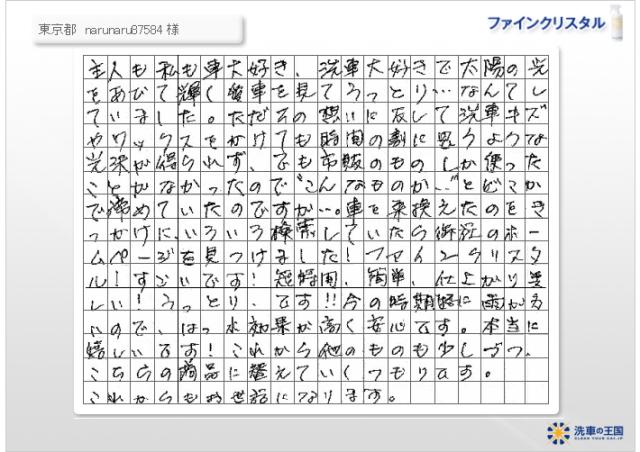 東京都 narunaru87584 様
ファインクリスタル
主人も私も車大好き、洗車大好きで太陽の光
をあびて輝く愛車を見てうっとり…なんてし
ていました。ただその想いに反して洗車キズ
やワックスをかけても時間の割に思うような
光沢が得られず、でも市販のものしか使った
ことがなかったので"こんなものか…"とどこか
で諦めていたのですが…。車を乗換えたのをき
っかけに、いろいろ検索していたら御社のホー
ムページを見つけました！ファインクリスタ
ル！すごいです！短時間、簡単、仕上がり美
しい！うっとり、です!!今の時期特に雨が多
いので、はっ水効果が高く安心です。本当に
嬉しいです！これから他のものも少しづつ、
こちらの商品に替えていくつもりです。
これからもお世話になります。
洗車の王国
CLEAN YOUR CAR.JP